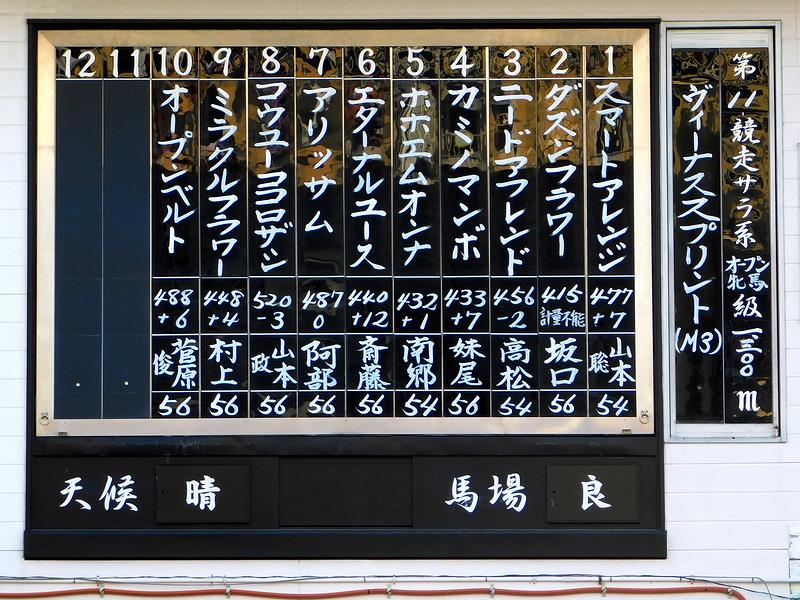 第11競走サラ系オープン牝馬級一三〇〇m
ヴィーナススプリント(M3)
1 スマートアレンジ 477 +7 山本聡 54
2 ダズンフラワー 415 計量不能 坂口 56
3 ニードアフレンド 456 -2 高松 54
4 カミノマンボ 433 +7 妹尾 56
5 ホホエムオンナ 432 +1 南郷 54
6 エターナルユース 440 +12 斎藤 56
7 アリッサム 487 0 阿部 56
8 コウユーココロザシ 520 -3 山本政 56
9 ミラクルフラワー 448 +4 村上 56
10 オープンベルト 488 +6 菅原俊 56
11
12
天候 晴
馬場 良